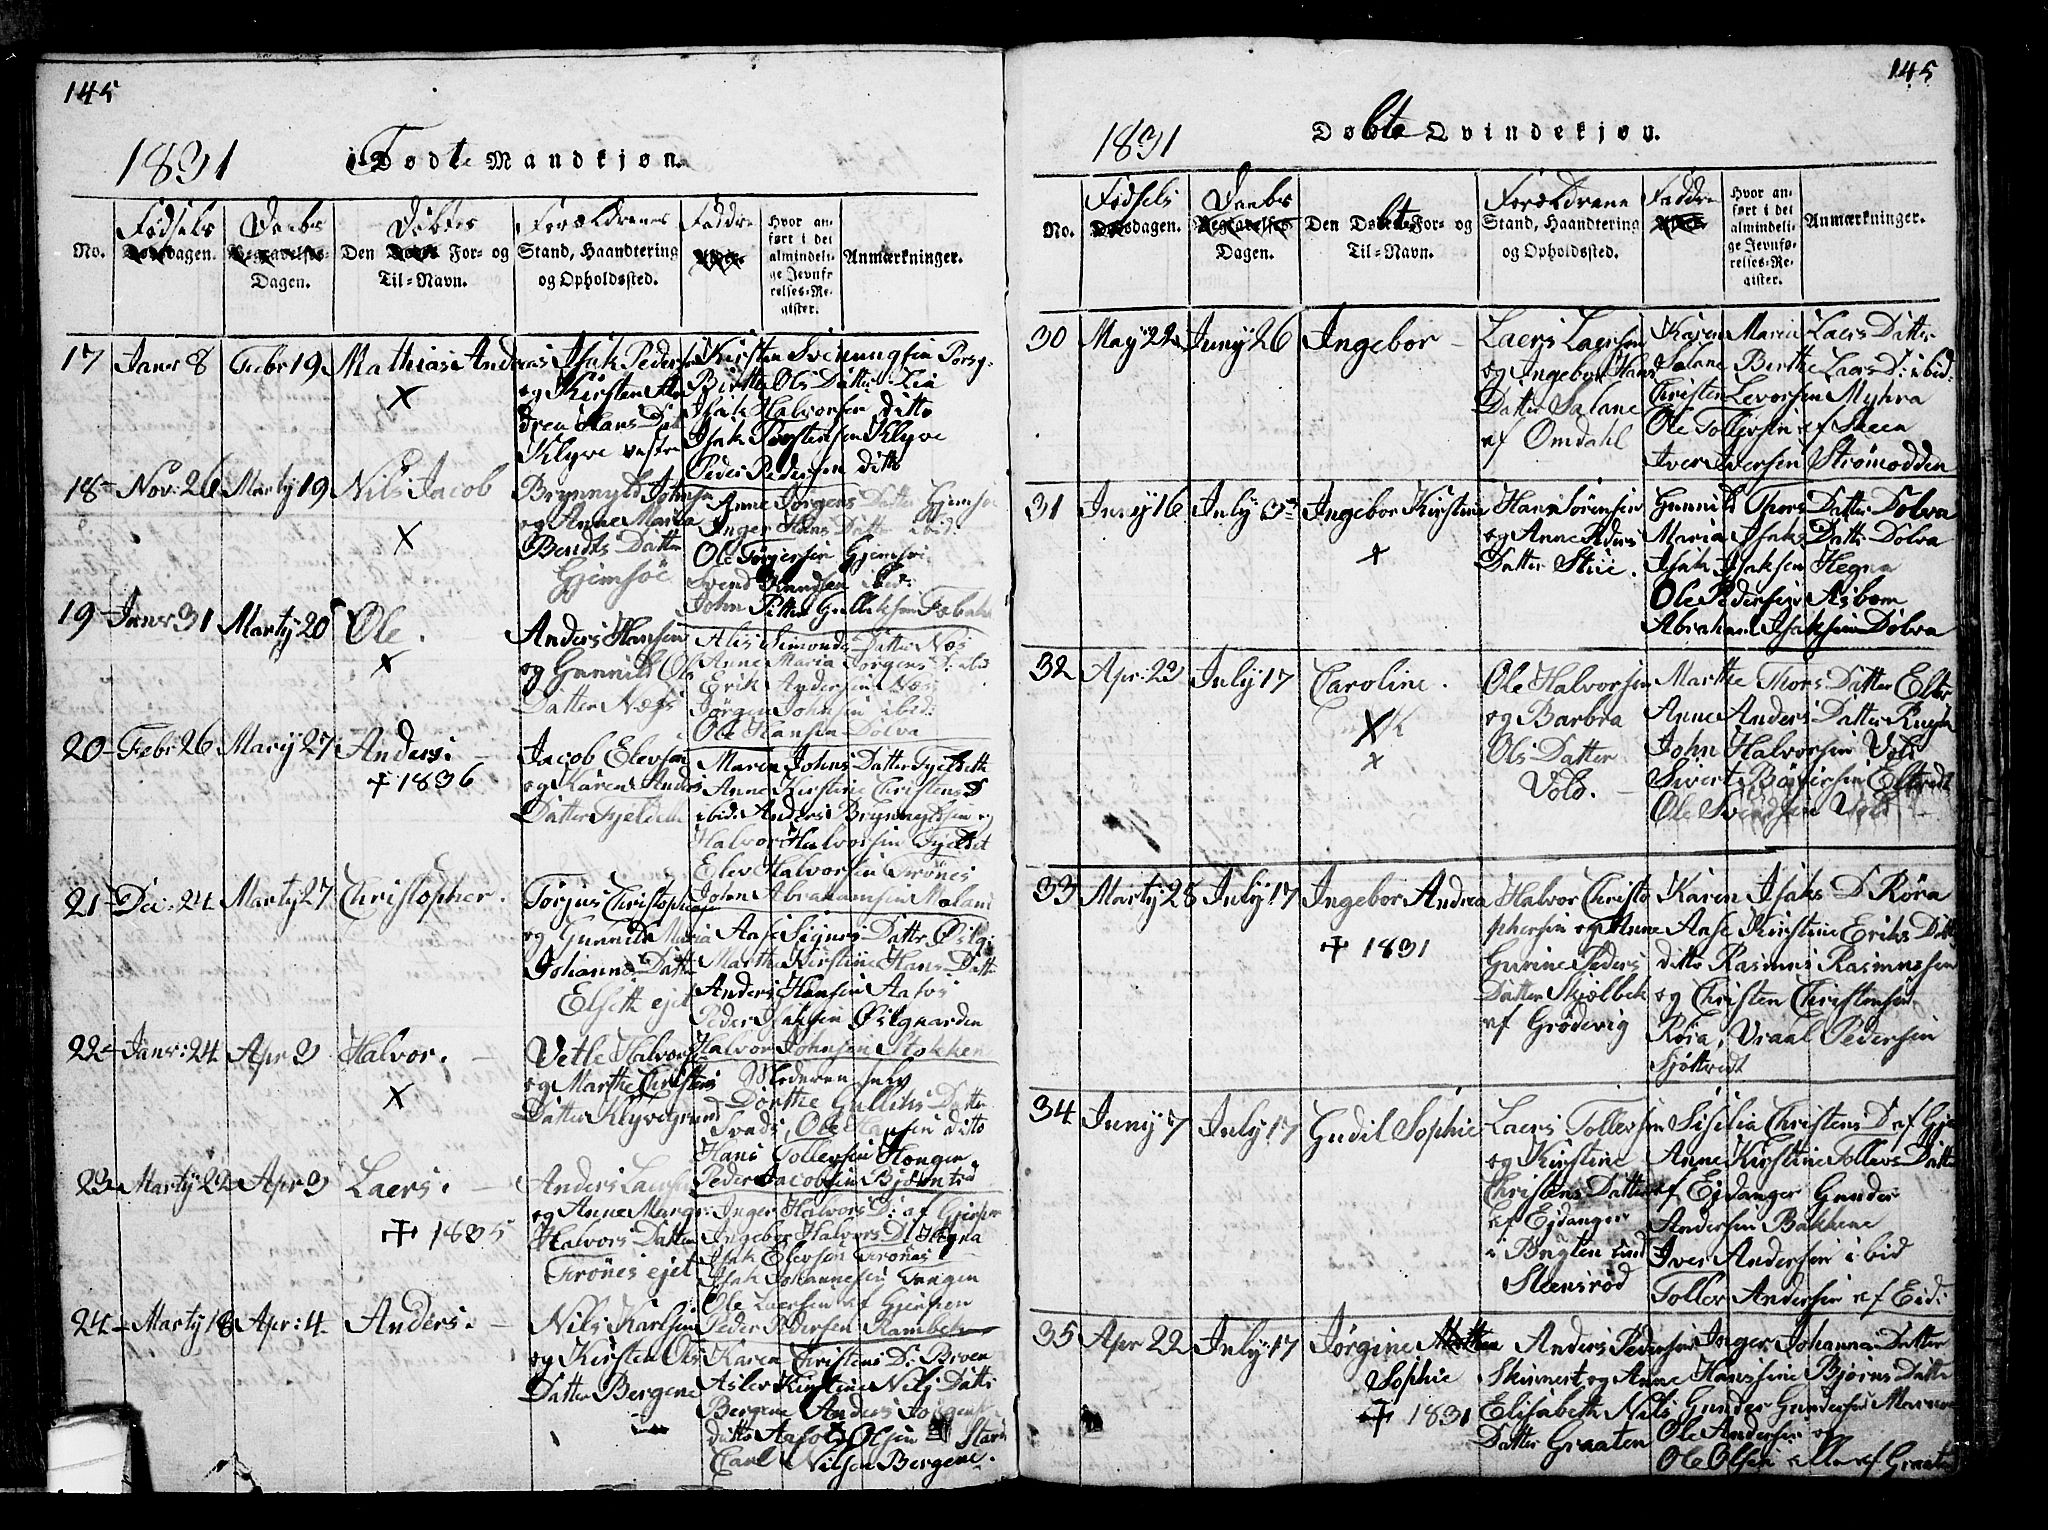 145
1831
Fødte Mandkjøn.
No.
Fødsels
Dagen.
Daabs
Dagen.
Den Døbtes For- og
Til-Navn.
Forældrenes
Stand, Haandtering
og Opholdssted.
Faddre
Hvor an-
ført i det
almindeli-
ge Jevnfø-
relses-Re-
gister.
Anmærkninger.
17 Janr 8 Febr 19 Mathias Andreas
×
Isak Pedersen
og Kirsten An
drea Hans Dat
Klyve vestre
Kirsten Svenungsen Porsg.
Birthe Ols Datter Lia
Isak Halvorsen ditto
Isak Torstensen Klyve
Peder Pedersen ditto
18 Nov. 26 Marty 19 Nils Jacob
×
Brynnyld Johnsen
og Anne Maria
Bendts Datter
Gjemsöe
Anne Jørgens Datter Gjemsöe
Inger Hans Datter ibid:
Ole Torgersen Gjemsöe
Svend Knudsen ibid:
John Pitter Gulliksen
19 Janr 31 Marty 20 Ole.
×
Anders Hansen
og Gunnild Ols
Datter Næss
Alis Simonds Datter Næs
Anne Maria Jørgens D: ibid
Erik Andersen Næs
Jörgen Johnsen ibid:
Ole Hansen Dolva
20 Febr 26 Marty 27 Anders.
+ 1836
Jacob Elevsen
og Karen Anders
Datter Fjeldet
Maria Johns Datter Fjeldet
Anne Kirstine Christens D
ibid: Anders Brynnyldsen og
Halvor Halvorsen Fjeldet
Elev Halvorsen Trönes
21 Dec. 24 Marty 27 Christopher.
Torjus Christophersen
og Gunnild Maria
Johannes Datter
Elseth ejet
John Abrahamsen
Aase Signes Datter
Marthe Kirstine Hans Datter
Anders Hansen Aatvs
Peder Isaksen Østgaarden
22 Janr: 24 Apr 3 Halvor.
×
Vetle Halvorsen
og Marthe Christens
Datter Klyvegrund
Halvor Johnsen Stokken
Moderen selv
Dorthe Gulliks Datter
Ole Hansen ditto
Hans Tollefsen
Peder Jacobsen Bjørntvd
23 Marty 22 Apr 3 Laers.
+ 1835
Anders Laersen
og Anne Margr
Halvors Datter
Trönes ejet
Inger Halvors D: af Gjerpen
Ingebor Halvors D: Hegna
Isak Elevsen Trönes
Isak Johannesen Tangen
Ole Laersen af Gjerpen
24 Marty 18 Apr: 4 Anders.
Nils Karlsen
og Kirsten Ols
Datter Bergene
Peder Pedersen Rambek
Karen Christens D: Broen
Aslev Kirstine Nils Datter
Bergene Anders Jörgens
ditto Olsen
Carl Nilsen Bergene.
145
1831
Døbte Qvindekjøn.
No.
Fødsels
Dagen.
Daabs
Dagen.
Den Døbtes For- og
Til-Navn.
Forældrene
Stand, Haandtering
og Opholdssted.
Faddre
Hvor an-
ført i det
almindeli-
ge Jevnfø-
relses-Re-
gister.
Anmærkninger.
30 May 22 Juny 26 Ingebor
Laers Laersen
og Ingebor Hans
Datter Salane
af Omdahl
Karen Maria Laers Datter
Salane Birthe Laers D: ibid:
Christen Levorsen Myhra
Ole Tollefsen af Skeen
Iver Iversen Strömodden
31 Juny 16 July 3 Ingebor Kirstine
+
Hans Sørensen
og Anne Peders
Datter Stüe.
Gunnild Thors Datter Dolva
Maria Isaks Datter Dolva
Isak Isaksen Hegna
Ole Pedersen Asbom
Abraham Isaksen Dolva
32 Apr. 23 July 17 Caroline.
×
×
Ole Halvorsen
og Barbra
Ols Datter
Vold.
Marthe Thors Datter
Anne Anders Datter
John Halvorsen Vold
Sivert
Ole Svendsen Vold
33 Marty 28 July 17 Ingebor Andrea
+ 1831
Halvor Christo
phersen og Anne
Gurine Peders
Datter Skiølbek
af Grødevig
Karen Isaks D Röra
Aase Kirstine Eriks Datt
ditto Rasmus Rasmussen
og Christen Christensen
Röra, Vraal Pedersen
34 Juny 7 July 17 Gudil Sophie
Laers Tollefsen
og Kirstine
Christens Datter
af Ejdanger
i Bøgten
Steensröd
Sisilia Christens D af
Anne Kirstine Tollefs Datt
af Ejdanger Gunder
Andersen Bakkene
Iver Andersen ibid
Toller Andersen af Eid:
35 Apr 22 July 17 Jørgine
Sophie
+ 1831
Anders Pedersen
Skinnert og Anne
Elisabeth Nils
Datter Graaten
Inger Johanna Datter
Hansine Bjørns Datte
Gunder Gundersen
Ole Andersen og
Ole Olsen alle af Graaten